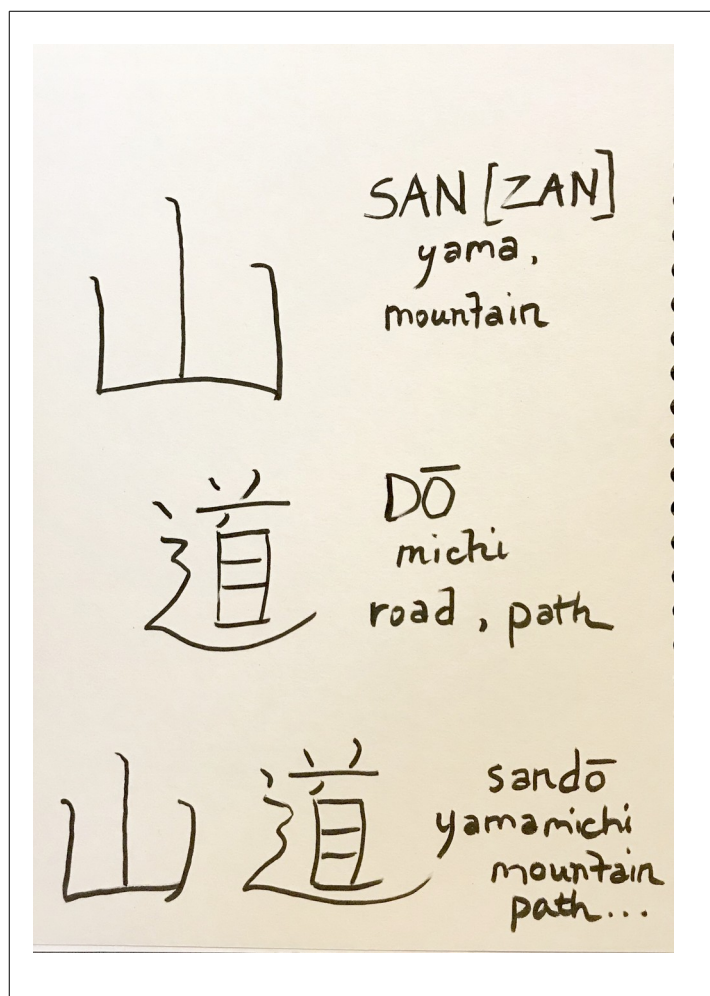 山
SAN [ZAN]
yama,
mountain
道
DŌ
michi
road, path
山道
sandō
yamamichi
mountain
path...